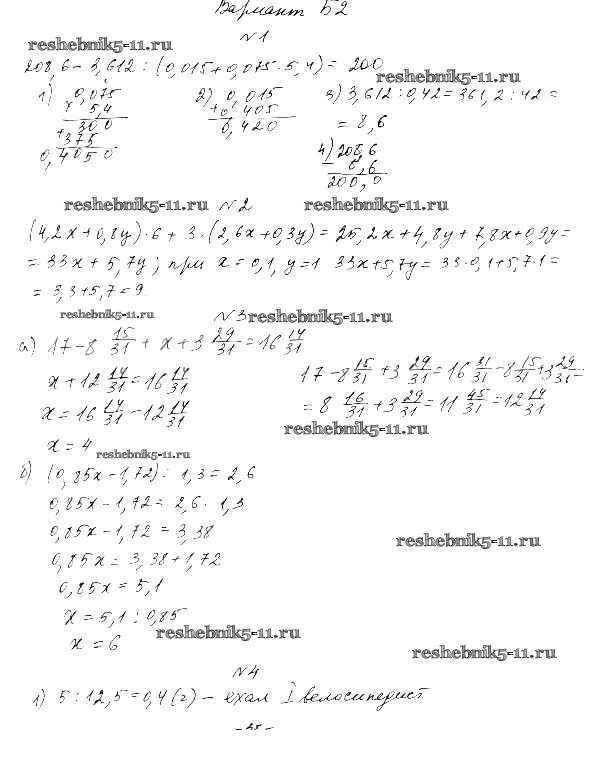 Вариант Б2
№1
reshebnik5-11.ru
208,6 - 3,612 : (0,015 + 0,075 · 5,4) = 200
reshebnik5-11.ru
1) 0,075
× 5,4
300
+ 375
0,4050
2) 0,015
+ 0,405
0,420
3) 3,612 : 0,42 = 361,2 : 42 =
= 8,6
4) 208,6
- 8,6
200,0
reshebnik5-11.ru №2 reshebnik5-11.ru
(4,2x + 0,8y) · 6 + 3 · (2,6x + 0,3y) = 25,2x + 4,8y + 7,8x + 0,9y =
= 33x + 5,7y; при x = 0,1, y = 1 33x + 5,7y = 33 · 0,1 + 5,7 · 1 =
= 3,3 + 5,7 = 9
reshebnik5-11.ru №3 reshebnik5-11.ru
а) 17 - 8 15/31 + x + 3 29/31 = 16 14/31
x + 12 14/31 = 16 14/31
x = 16 14/31 - 12 14/31
x = 4
17 - 8 15/31 + 3 29/31 = 16 31/31 - 8 15/31 + 3 29/31 =
= 8 16/31 + 3 29/31 = 11 45/31 = 12 14/31
reshebnik5-11.ru
reshebnik5-11.ru
б) (0,85x - 1,72) : 1,3 = 2,6
0,85x - 1,72 = 2,6 · 1,3
0,85x - 1,72 = 3,38
reshebnik5-11.ru
0,85x = 3,38 + 1,72
0,85x = 5,1
x = 5,1 : 0,85
reshebnik5-11.ru
x = 6
reshebnik5-11.ru
№4
1) 5 : 12,5 = 0,4 (г) - ехал I велосипедист
- 25 -